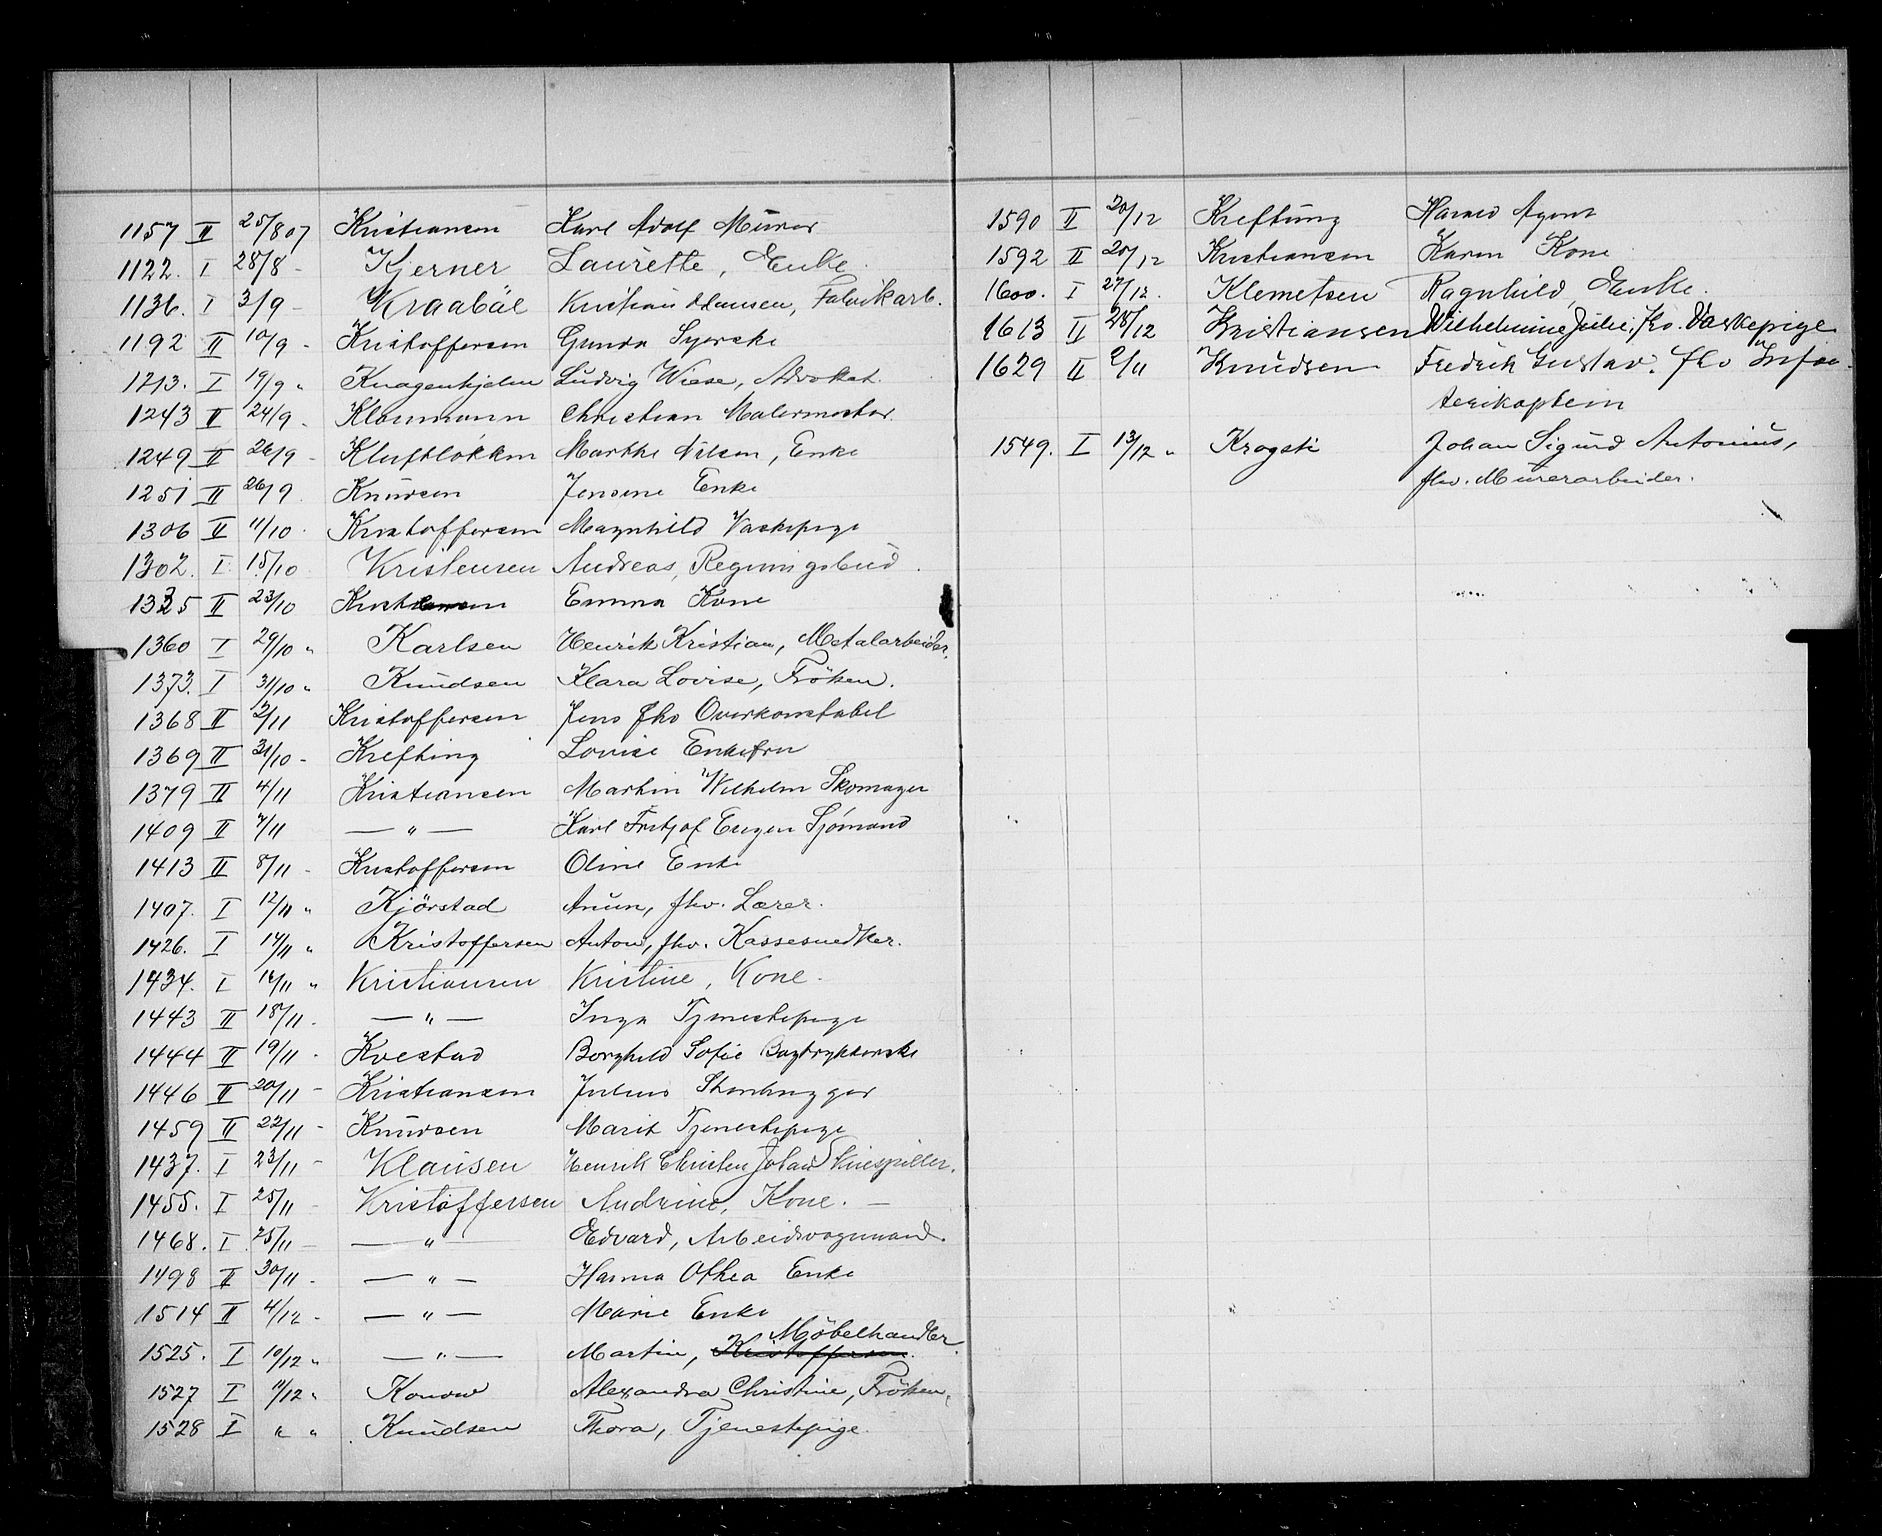 1157 II 25/8 07 Kristiansen Karl Adolf Murer
1122. I 28/8 - Kjerner Laurette, Enke.
1136. I 3/9 - Kraabäl Kristian Hansen, Fabrikarb.
1192 II 10/9 - Kristoffersen Gunda Syerske
1213. I 19/9 " Knagenhjelm Ludvig Wiese, Advokat.
1243 II 24/9 - Klaumann Christian Malermester
1249 II 26/9 - Kluftlökken Marthe Nilsen, Enke
1251 II 26/9 Knudsen Jensine Enke
1306 II 11/10 - Kristoffersen Magnhild Vaskepige
1302. I 15/10 Kristensen Andreas, Regningsbud.
1325 II 23/10 Emma Kone
1360 I 29/10 " Karlsen Henrik Kristian, Metalarbeider.
1373. I 31/10 " Knudsen Klara Lovise, Fröken.
1368 II 2/11 Kristoffersen Jens fhv Overkonstabel
1369 II 31/10 - Krefting Lovise Enkefru
1379 II 4/11 Kristiansen Martin Wilhelm Skomager
1409 II 7/11 — " — Karl Fritjof Eugen Sjömand
1413 II 8/11 - Kristoffersen Oline Enke
1407. I 12/11 " Kjörstad Anun, fhv. Lærer.
1426. I 14/11 " Kristoffersen Anton, fhv. Kassesnedker.
1434. I 14/11 " Kristiansen Kristine, Kone.
1443 II 18/11 - — " — Inga Tjenestepige
1444 II 19/11 - Kvestad Borghild Sofie Bogtrykkerske
1446 II 20/11 - Kristiansen Julius Stenhugger
1459 II 22/11 - Knudsen Marit Tjenestepige
1437. I 23/11 - Klausen Henrik Christen Johan Skuespiller.
1455. I 25/11 - Kristoffersen Andrine, Kone. —
1468. I 25/11 - — " — Edvard, Arbeidsvognmand.
1498 II 30/11 - — " — Hanna Othea Enke
1514 II 4/12 - — " — Marie Enke
Möbelhandler.
1525. I 10/12 " — " — Martin, Kristoffersen.
1527 I 11/12 " Konow Alexandra Christine, Fröken.
1528 I " " Knudsen Thora, Tjenestepige.
1590 II 20/12 Kreftung Harald Agent
1592 II 20/12 Kristiansen Karen Kone
1600. I 27/12. Klemetsen Ragnhild, Enke.
1613 II 28/12 Kristiansen Wilhelmine Julie, fhv. Vaskepige
1629 II 2/11 Knudsen Fredrik Gustav. fhv Infan-
terikaptein
1549. I 13/12 " Krogsti Johan Sigurd Antonius,
fhv. Murerarbeider.